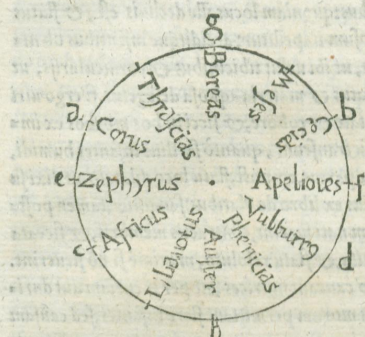 Boreas
Meses
Cecias
b
Apeliotes
f
Vulturnꝰ
d
phenicias
Auster
h
Libonotus
Africus
c
Zephyrus
e
Corus
a
Thrascias